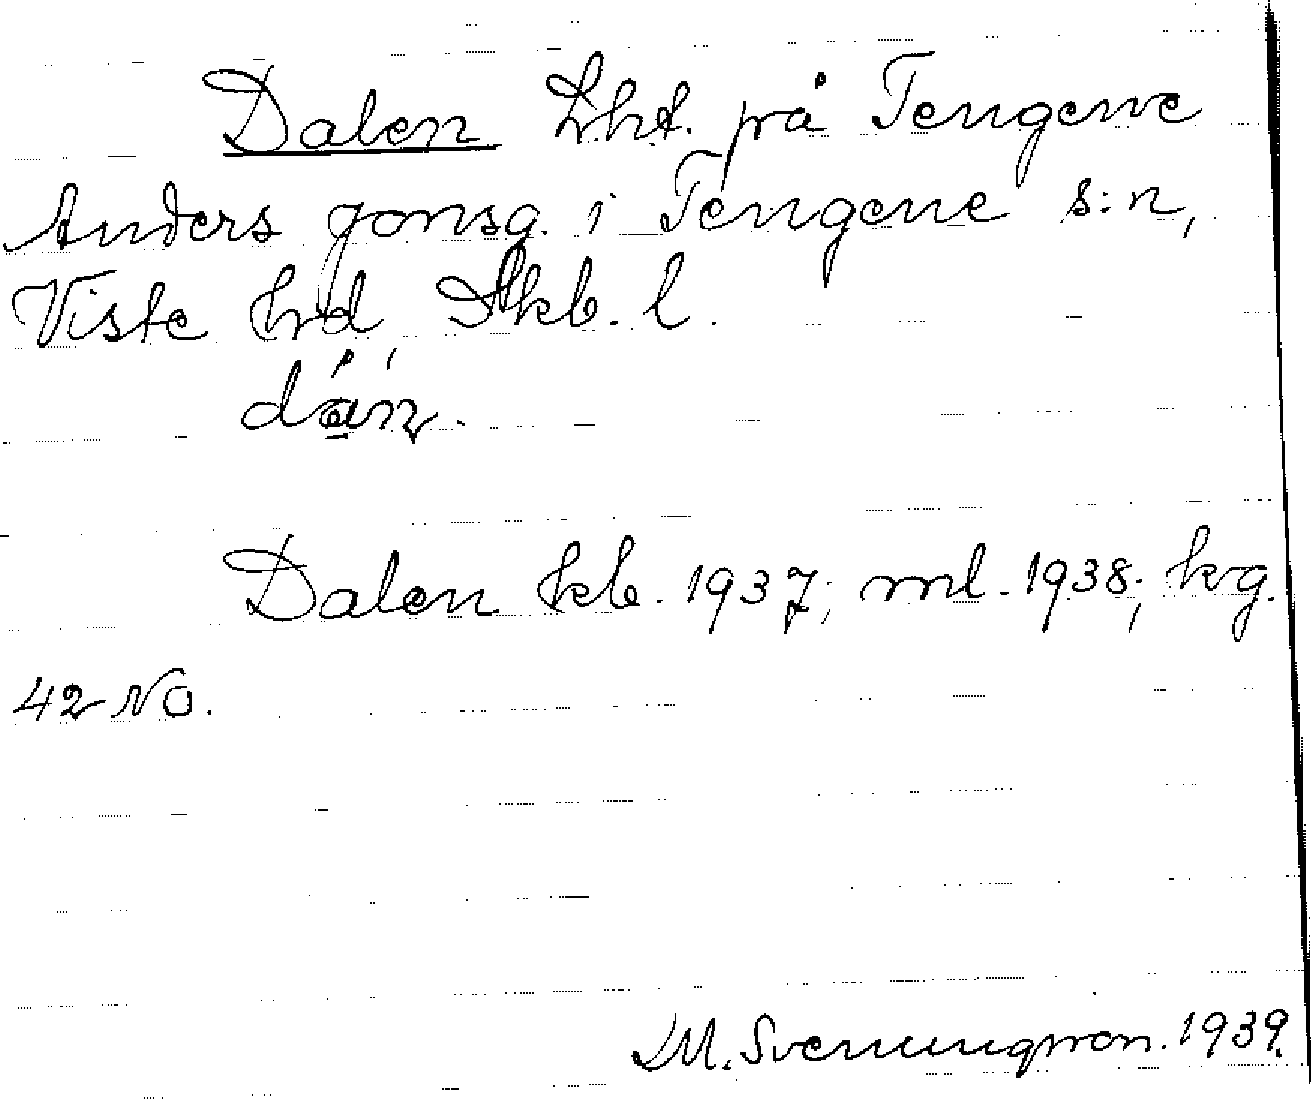 Dalen Lht. på Tengene
Anders Jonsg. i Tengene s:n,
Viste hrd Skb. l.
dán.
Dalen kb. 1937; ml. 1938; kvg.
42 NO.
M. Svenungsson. 1939.